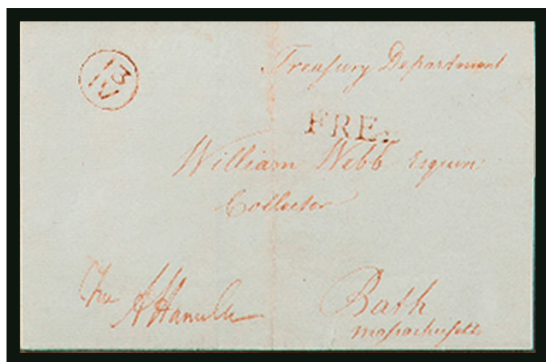 13
IV
Treasury Department
FRE.
William Webb Esquire
Collector
Free
A Hamilt
Bath
Massachusetts